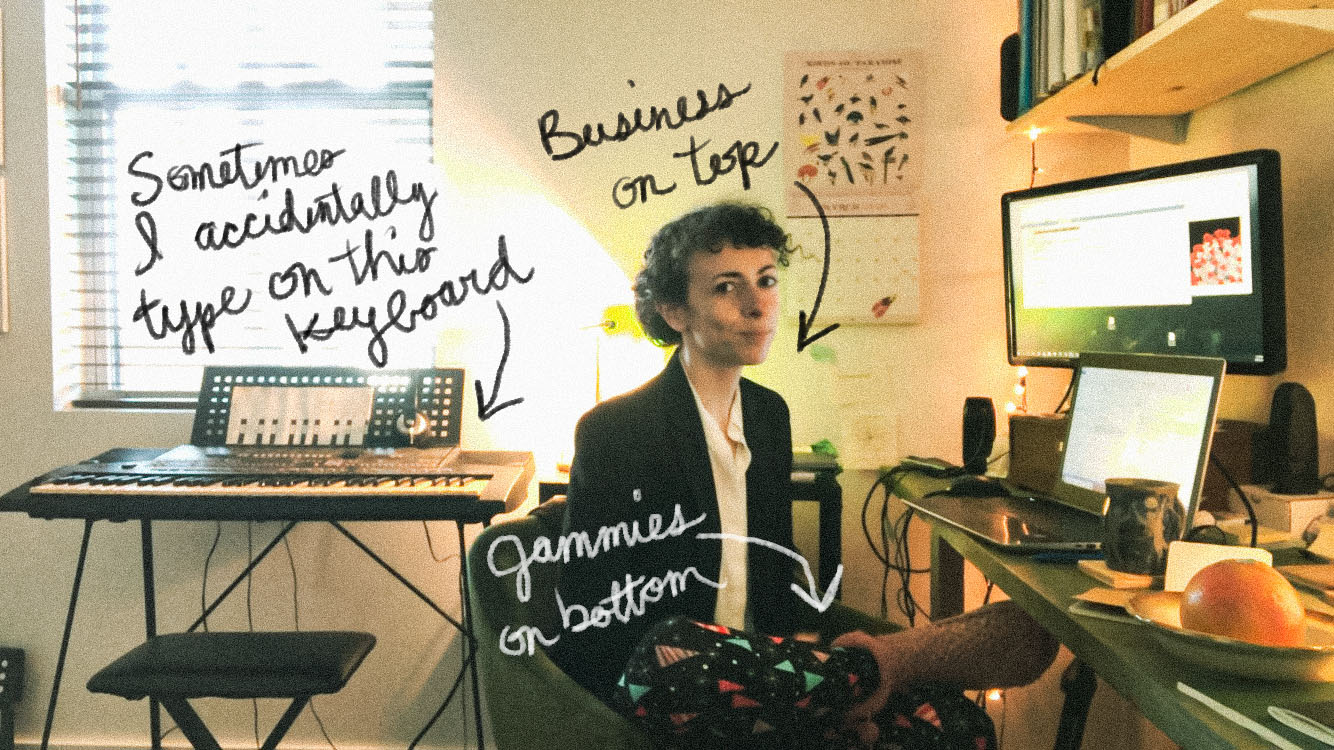 Sometimes
I accidentally
type on this
keyboard
Business
on top
BIRDS OF PARADISE
jammies
on bottom